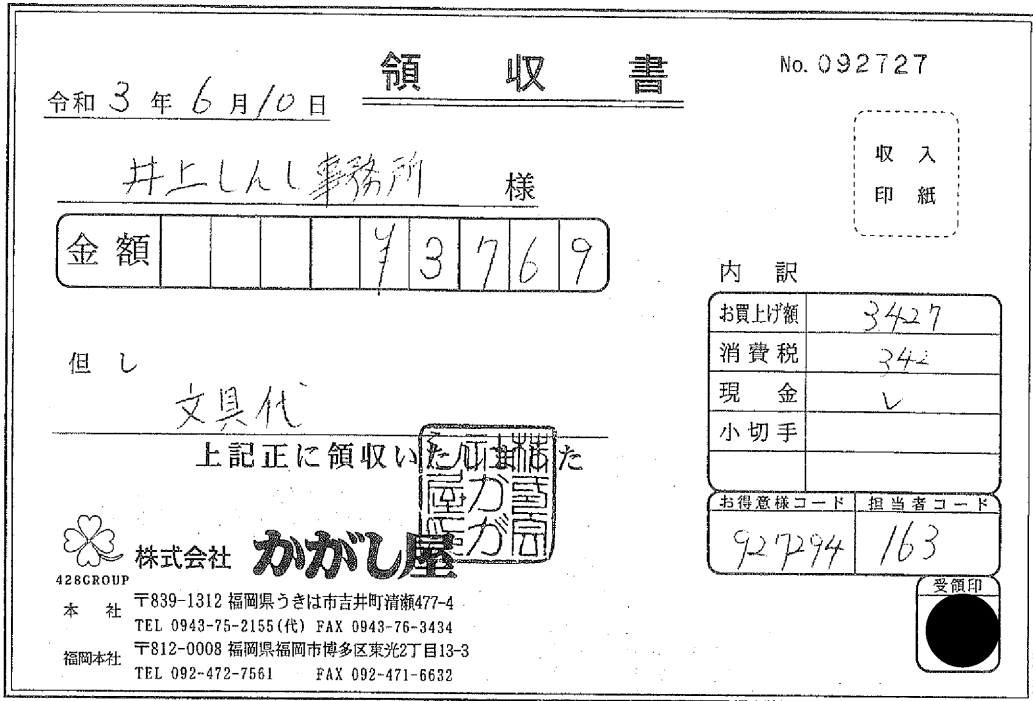 領収書
No. 092727
令和 3 年 6 月 10 日
収入
印紙
井上しんし事務所 様
金額 ¥3769
内訳
お買上げ額 3427
消費税 342
現金 レ
小切手
但し
文具代
上記正に領収いたしました
お得意様コード 担当者コード
927294 163
受領印
428GROUP
株式会社 かがし屋
本社 〒839-1312 福岡県うきは市吉井町清瀬477-4
TEL 0943-75-2155(代) FAX 0943-76-3434
福岡本社 〒812-0008 福岡県福岡市博多区東光2丁目13-3
TEL 092-472-7561 FAX 092-471-6632